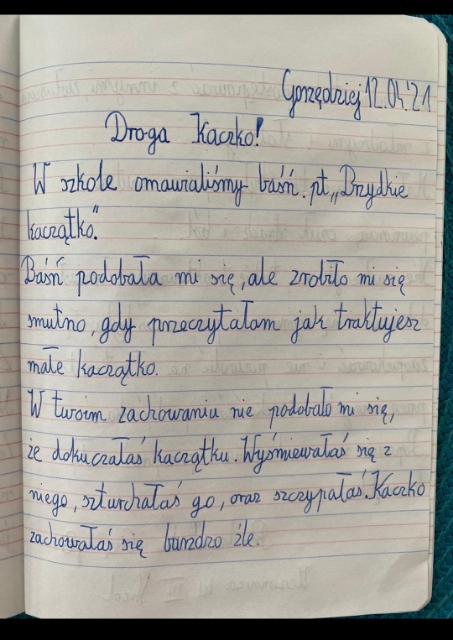 Gorzędziej 12.04.'21
Droga Kaczko!
W szkole omawialiśmy baśń. pt „Brzydkie
kaczątko".
Baśń podobała mi się, ale zrobiło mi się
smutno, gdy przeczytałam jak traktujesz
małe kaczątko.
W twoim zachowaniu nie podobało mi się,
że dokuczałaś kaczątku. Wyśmiewałaś się z
niego, szturchałaś go, oraz szczypałaś. Kaczko
zachowałaś się bardzo źle.